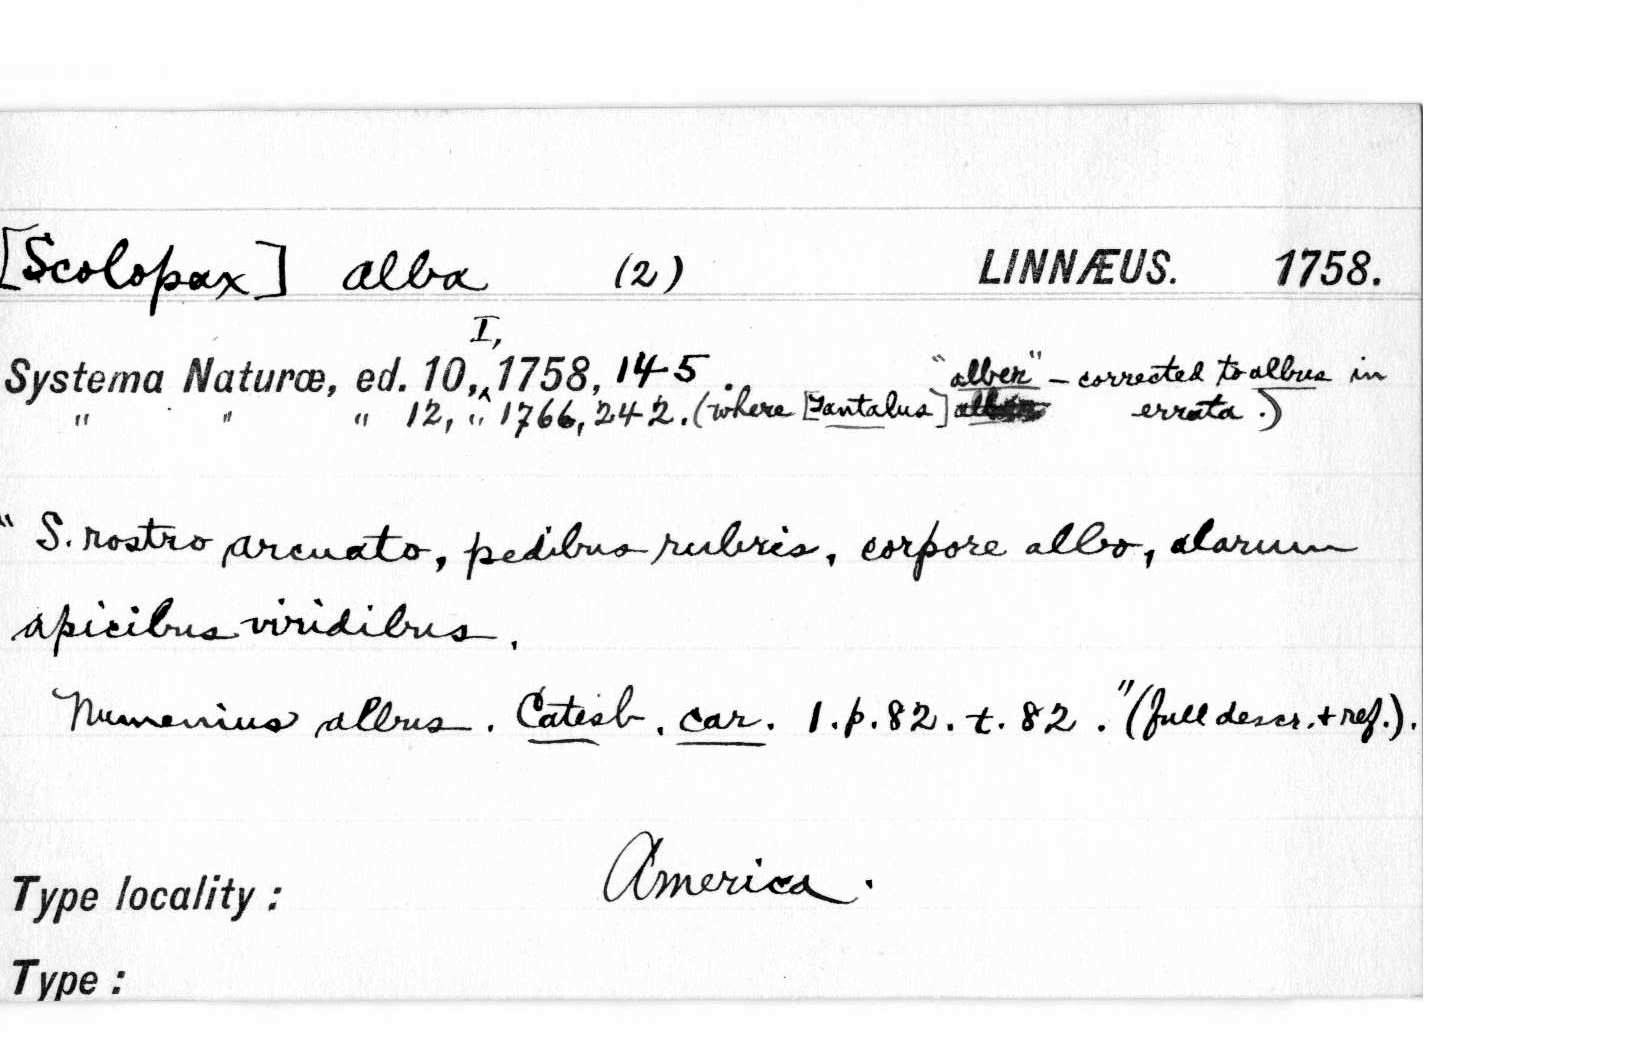 [Scolopax] alba (2) LINNÆUS. 1758.
I,
Systema Naturæ, ed. 10,‸ 1758, 145. "alber" – corrected to albus in
" " " 12, " 1766, 242. (where [Tantalus] errata.)
" S. rostro arcuato, pedibus rubris, corpore albo, alarum
apicibus viridibus.
Numenius albus. Catesb. car. 1. p. 82. t. 82." (full descr. + ref.).
Type locality: America.
Type: